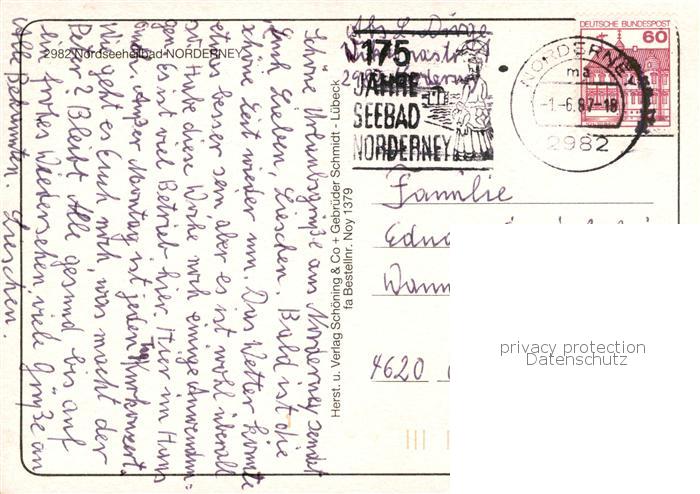 2982 Nordseeheilbad NORDERNEY
Schöne Urlaubsgrüße aus Norderney sendet
Euch Lieben, Lieschen. Bald ist die
schöne Zeit wieder um. Das Wetter könnte
etwas besser sein, aber es ist wohl überall
so. Habe diese Woche noch einige Anwendun=
gen. Es ist viel Betrieb hier. Hier im Haus
auch. Außer Montag ist jeden Tag Kurkonzert.
Wie geht es Euch noch, was macht der
Peter? Bleibt Alle gesund bis auf
ein frohes Wiedersehen, viele Grüße an
alle Bekannten. Lieschen.
Herst. u. Verlag Schöning & Co + Gebrüder Schmidt - Lübeck
fa Bestellnr. Noy 1379
Abs. L.
175
JAHRE
SEEBAD
NORDERNEY
DEUTSCHE BUNDESPOST
60
NORDERNEY
ma
-1.-6.87-18
2982
Familie
4620
privacy protection
Datenschutz